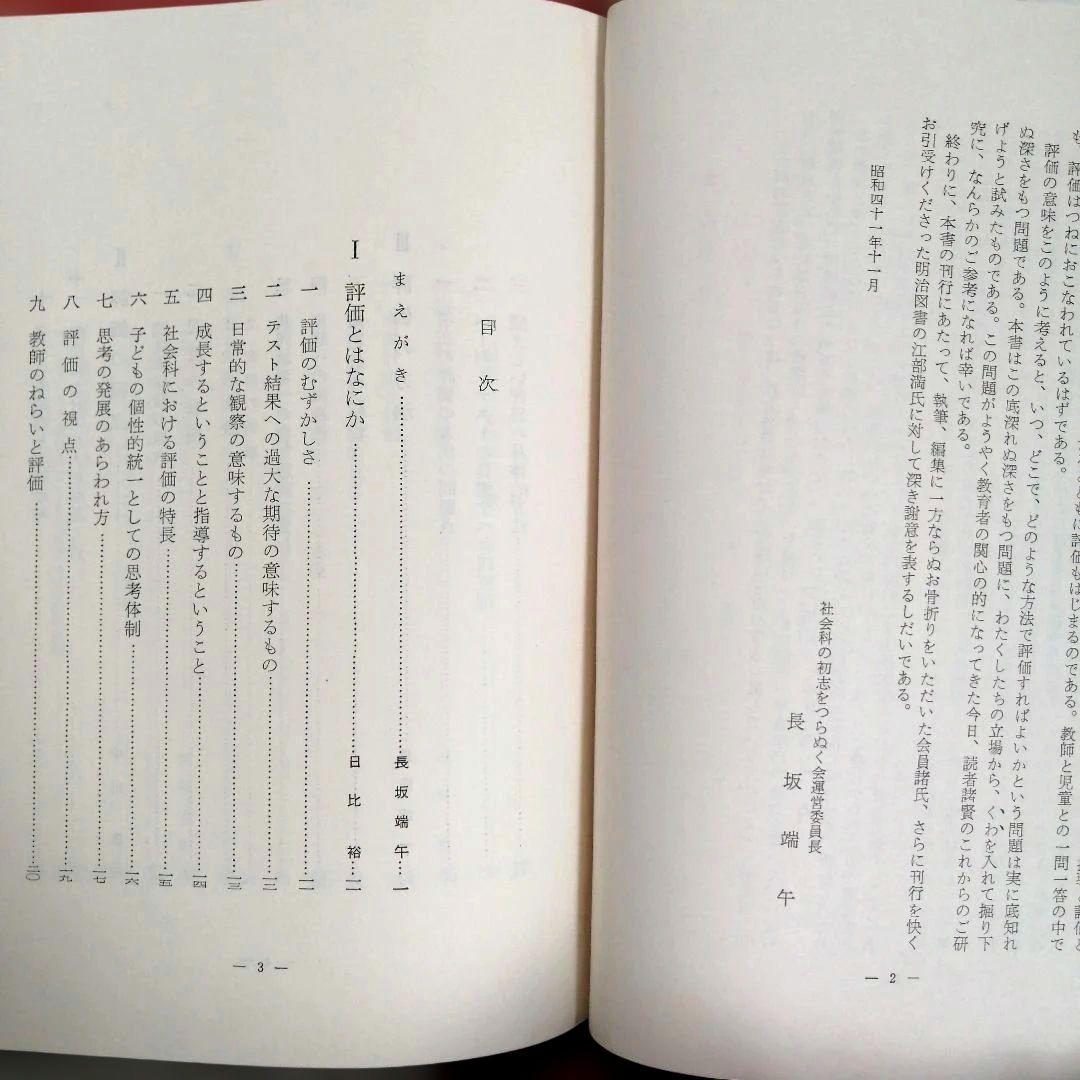 も、評価はつねにおこなわれているはずである。
評価の意味をこのように考えると、いつ、どこで、どのような方法で評価すればよいかという問題は実に底知れ
ぬ深さをもつ問題である。本書はこの底深れぬ深さをもつ問題に、わたくしたちの立場から、くわを入れて掘り下
げようと試みたものである。この問題がようやく教育者の関心の的になってきた今日、読者諸賢のこれからのご研
究に、なんらかのご参考になれば幸いである。
終わりに、本書の刊行にあたって、執筆、編集に一方ならぬお骨折りをいただいた会員諸氏、さらに刊行を快く
お引受けくださった明治図書の江部満氏に対して深き謝意を表するしだいである。
昭和四十一年十一月
社会科の初志をつらぬく会運営委員長
長坂端午
— 2 —
目次
まえがき……長坂端午…一
Ⅰ 評価とはなにか……日比裕…一一
一 評価のむずかしさ……一一
二 テスト結果への過大な期待の意味するもの……一二
三 日常的な観察の意味するもの……一三
四 成長するということと指導するということ……一四
五 社会科における評価の特長……一五
六 子どもの個性的統一としての思考体制……一六
七 思考の発展のあらわれ方……一七
八 評価の視点……一九
九 教師のねらいと評価……二〇
— 3 —